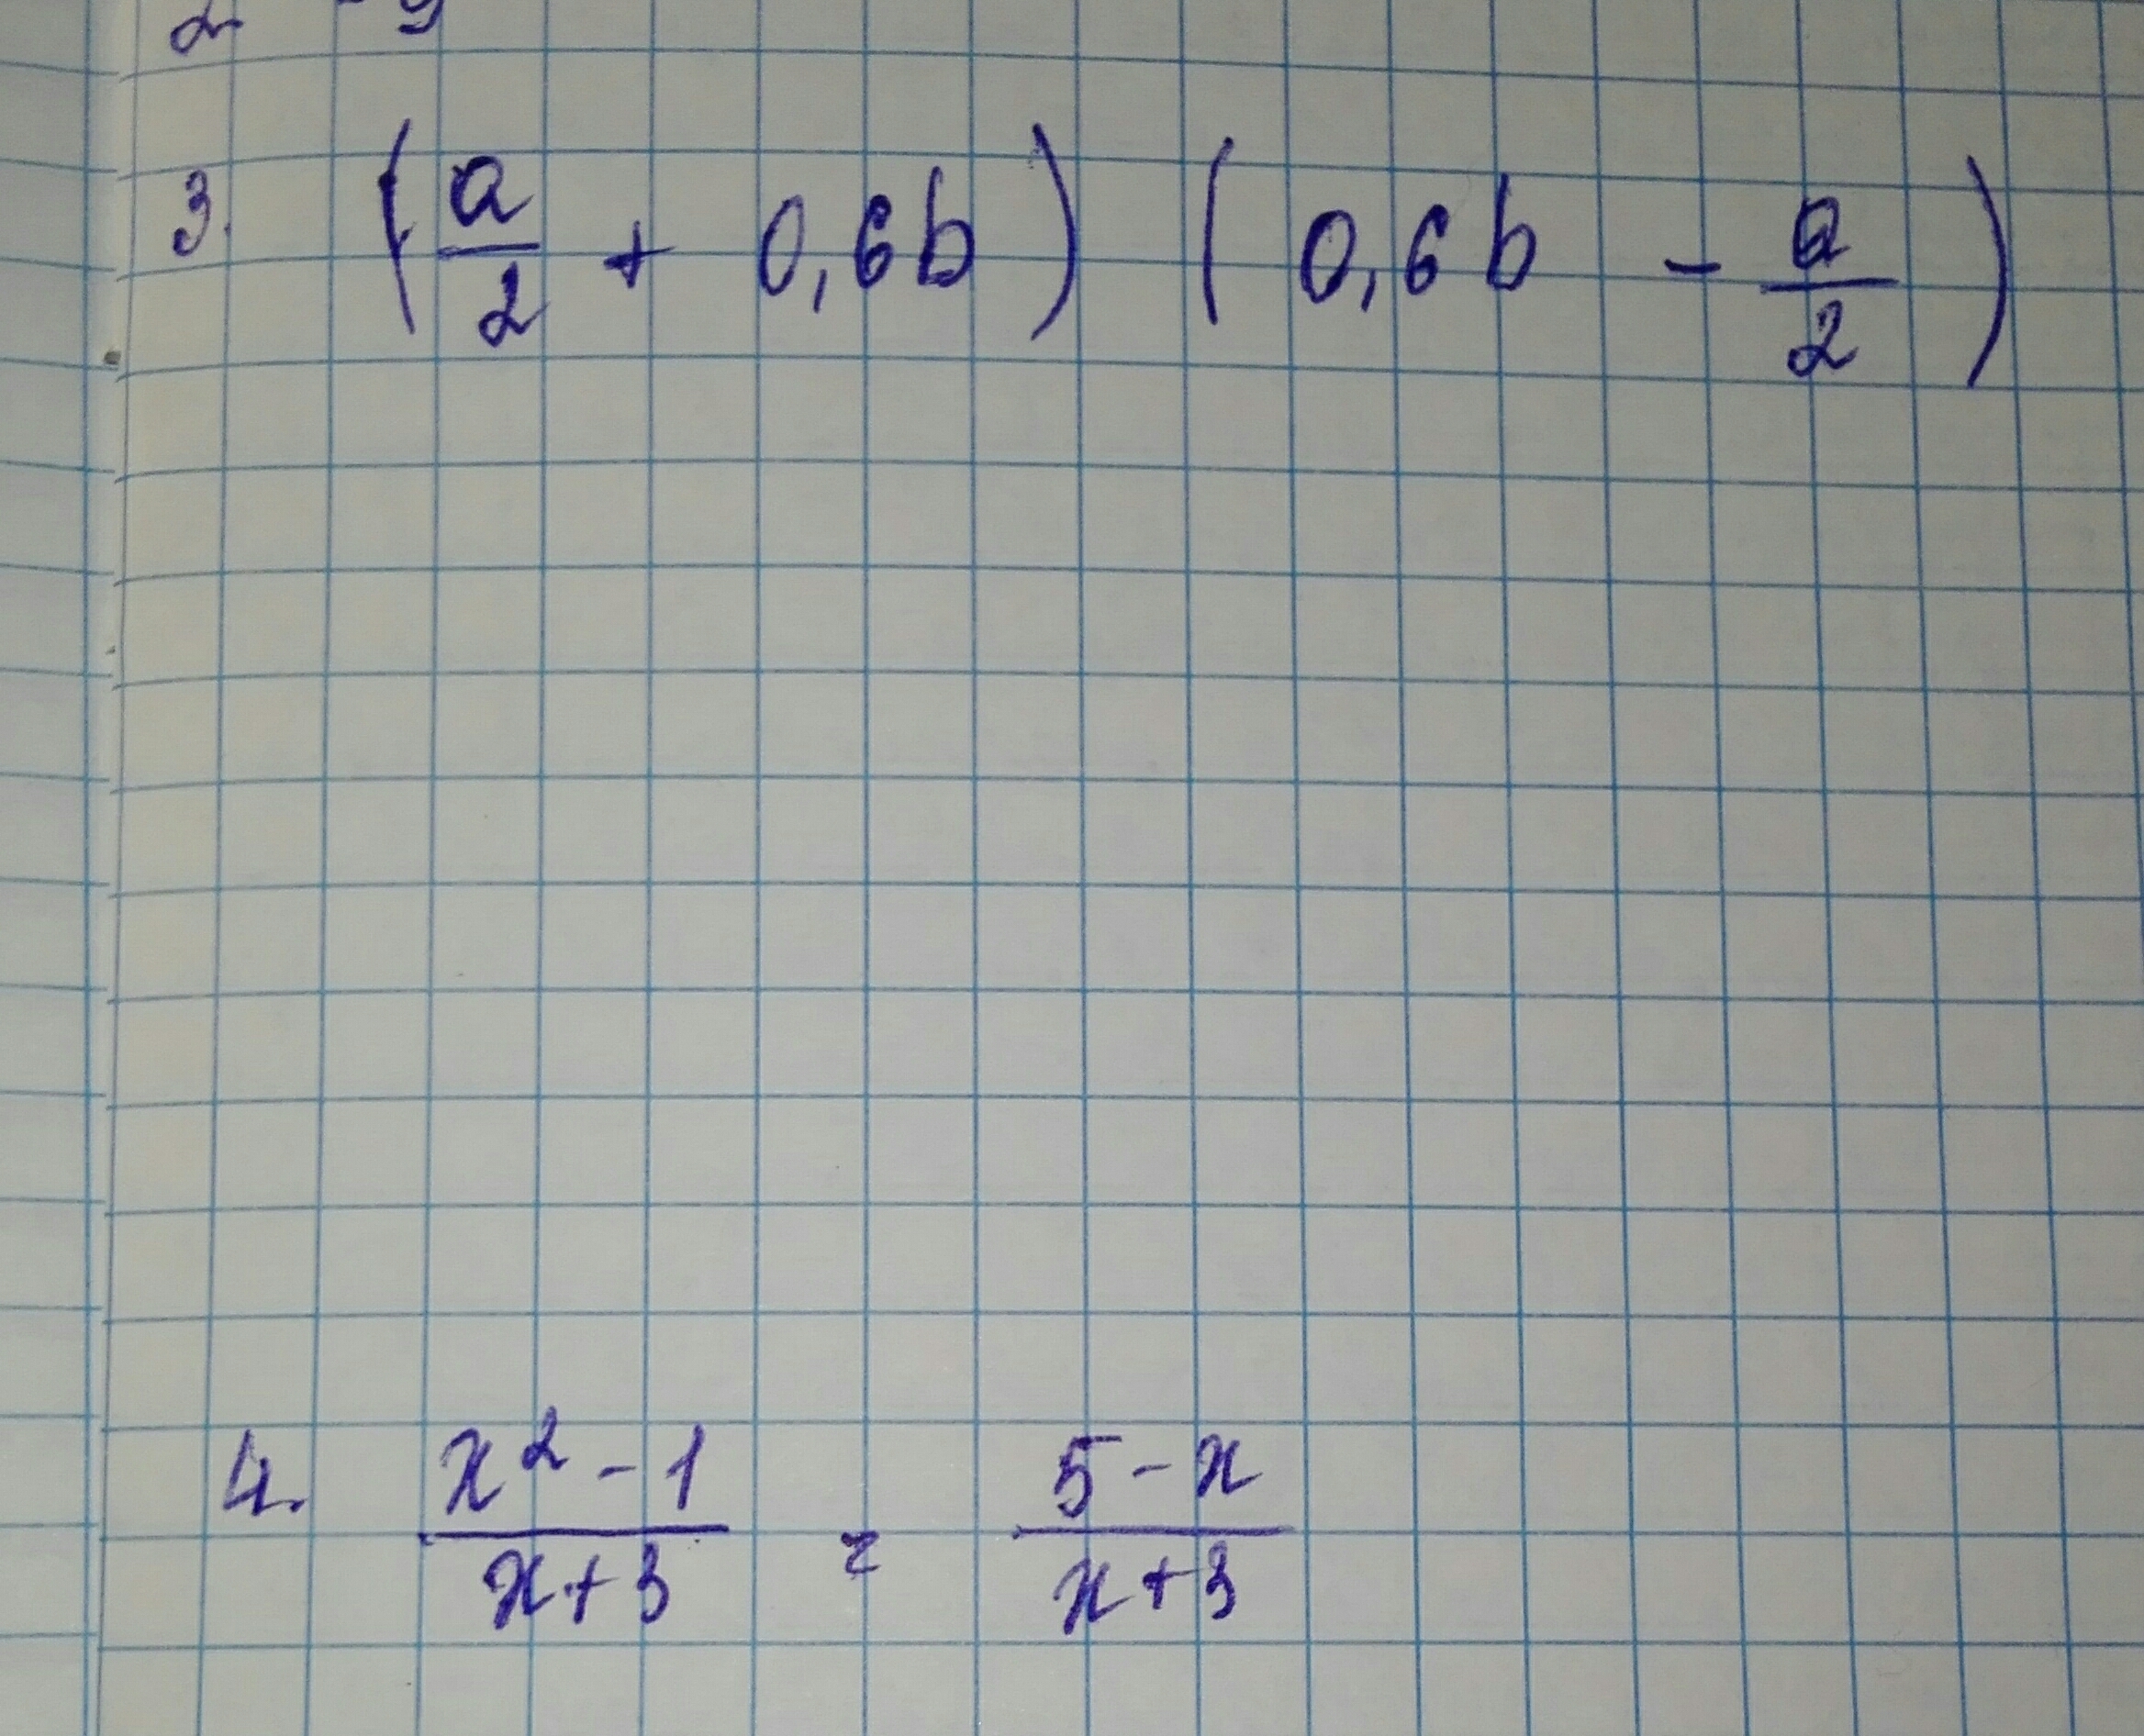 3. (a/2 + 0,6b) (0,6b - a/2)
4. x² - 1 / x+3 = 5 - x / x+3